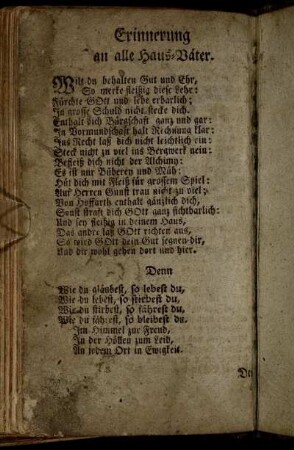 Erinnerung
an alle Haus-Väter.
Wilt du behalten Gut und Ehr,
So merke fleißig diese Lehr:
Fürchte GOtt und lebe erbarlich;
In grosse Schuld nicht stecke dich.
Enthalt dich Bürgschaft ganz und gar:
In Vormundschaft halt Rechnung klar:
Ins Recht laß dich nicht leichtlich ein:
Steck nicht zu viel ins Bergwerk nein:
Befleiß dich nicht der Alchimy:
Es ist nur Büberey und Müh:
Hüt dich mit Fleiß für grossem Spiel:
Auf Herren Gunst trau nicht zu viel:
Von Hoffarth enthalt gänzlich dich,
Sonst straft dich GOtt ganz sichtbarlich:
Und sey fleißig in deinem Haus,
Das andre laß GOtt richten aus,
So wird GOtt dein Gut segnen dir,
Und dir wohl gehen dort und hier.
Denn
Wie du gläubest, so lebest du,
Wie du lebest, so stirbest du,
Wie du stirbest, so fährest du,
Wie du fährest, so bleibest du.
Im Himmel zur Freud,
In der Höllen zum Leid,
An jedem Ort in Ewigkeit.